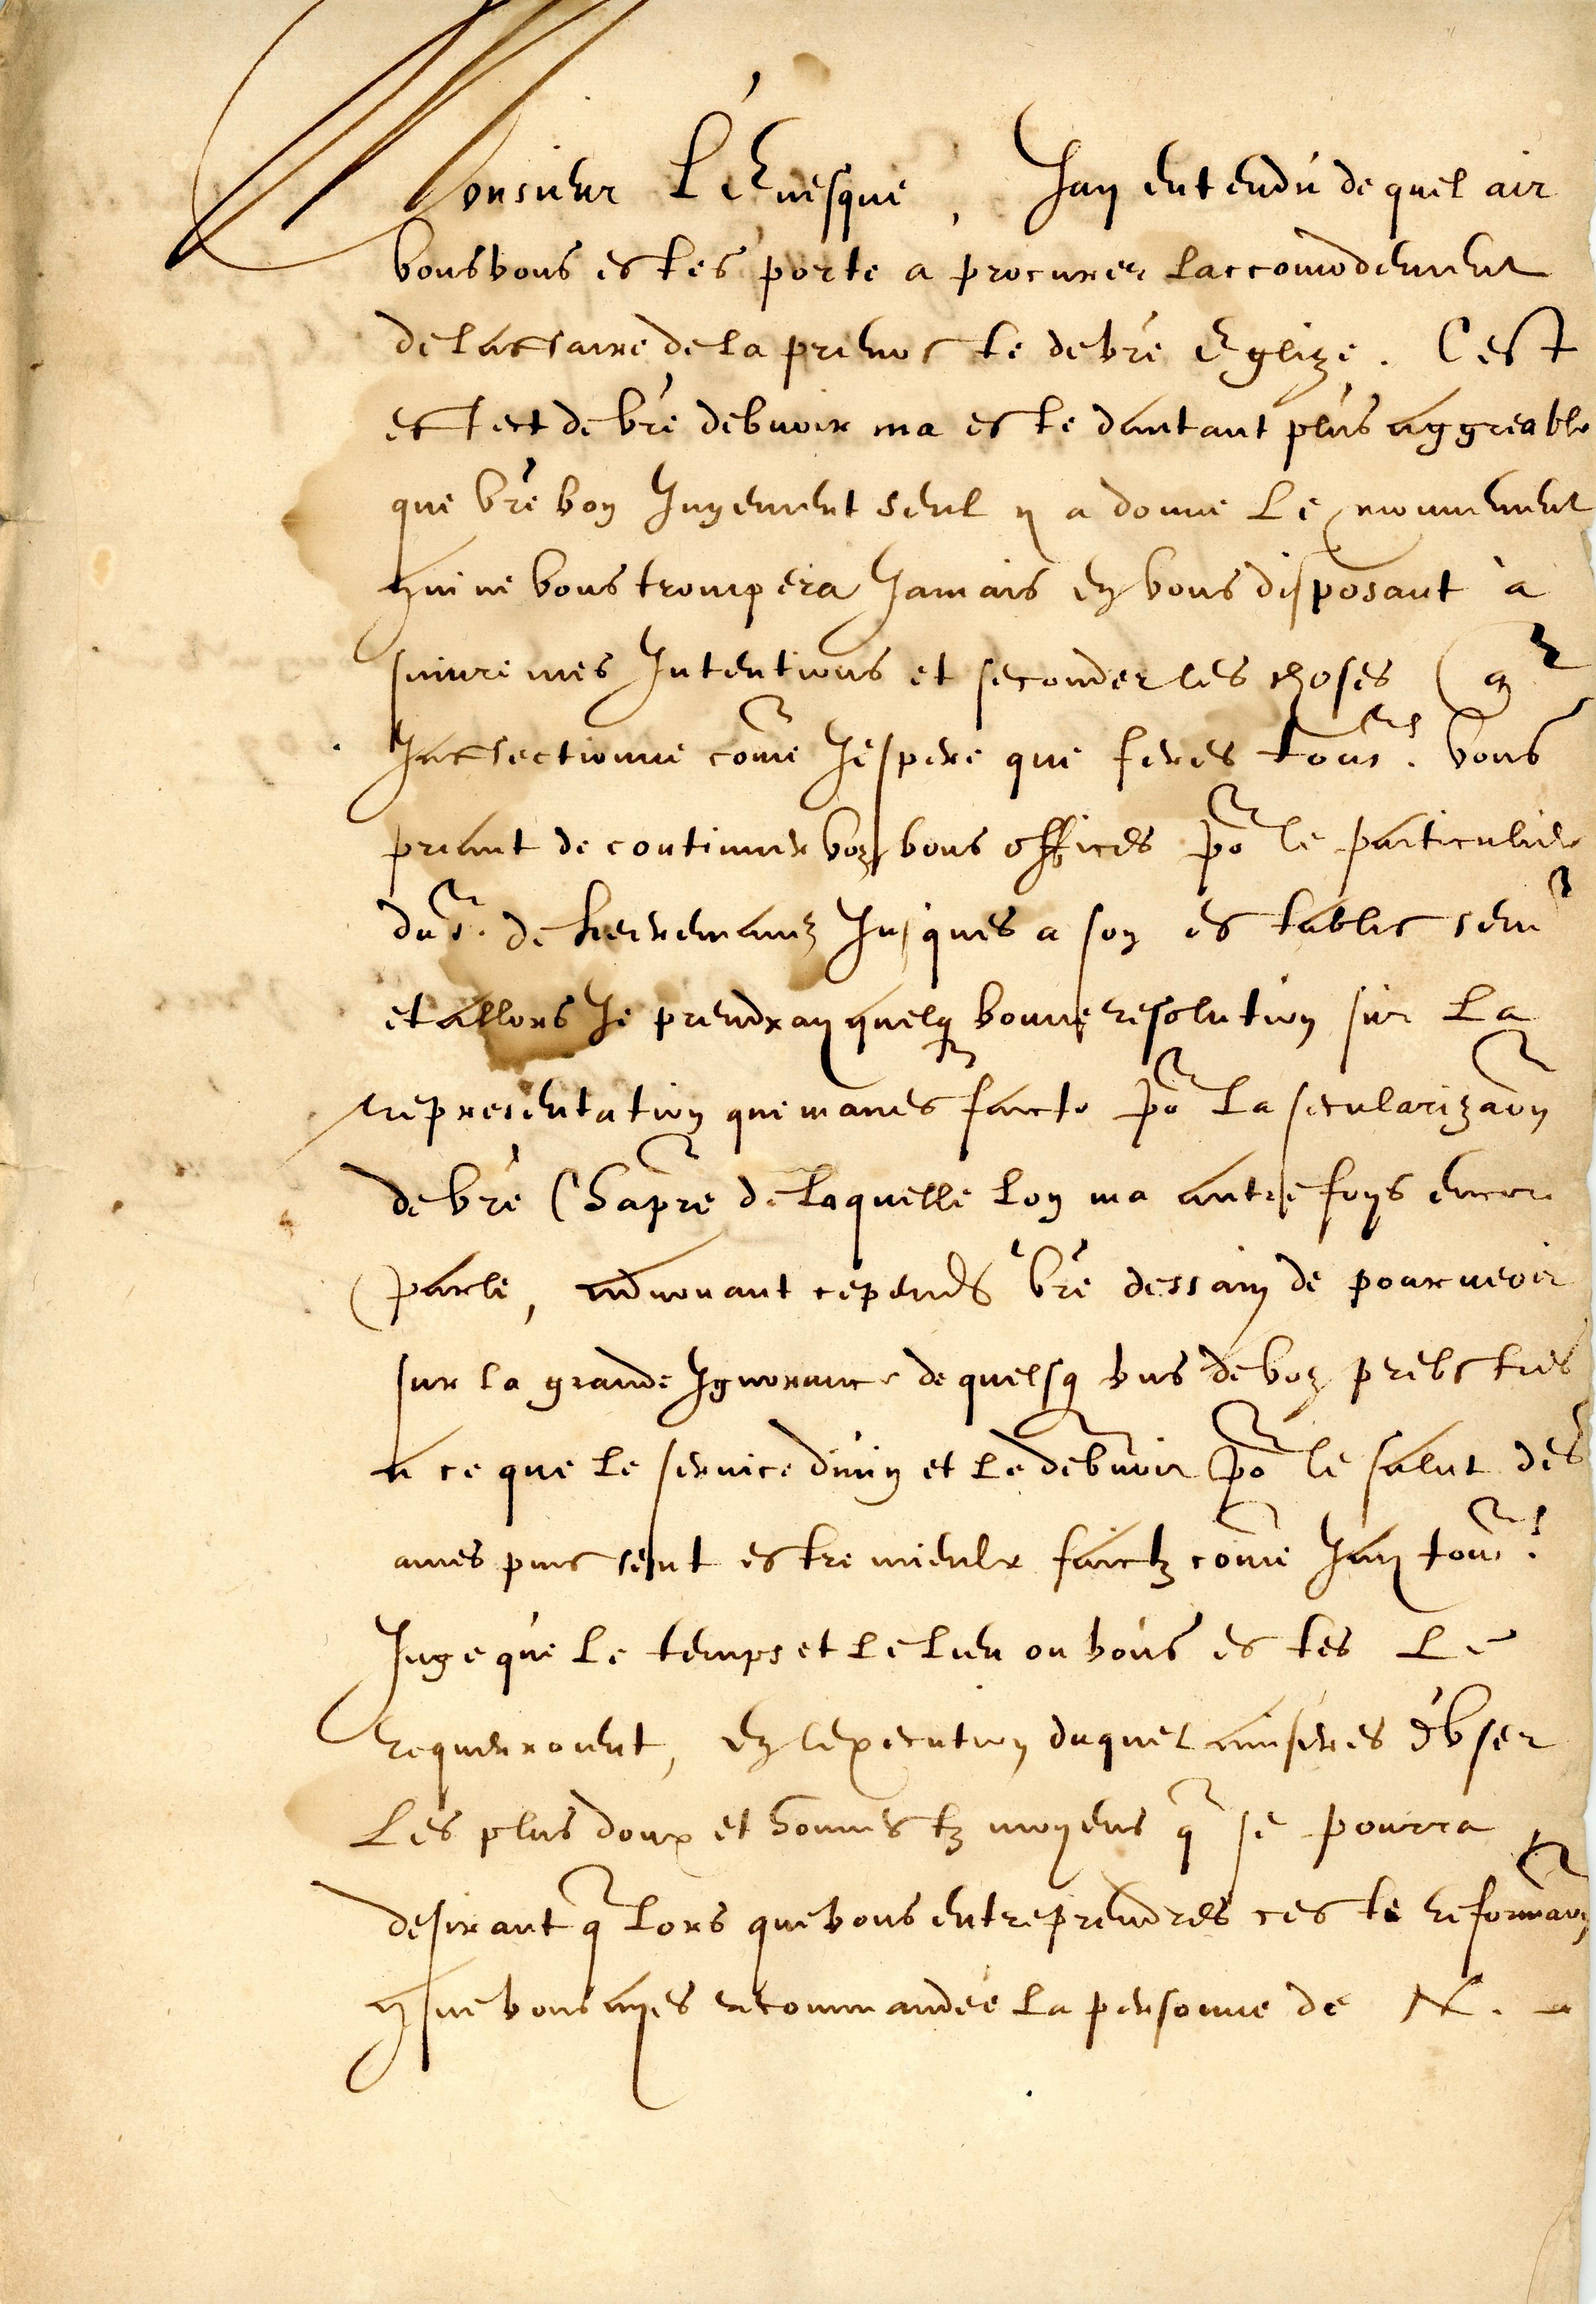 Monsieur L'Evesque, Jay entendu de quel air
vous vous estes porte a procurer laccomodement
de laffaire de la prevoste de vre Eglize. Cest
effect de vre debvoir ma este dautant plus aggreable
que vre bon Jugement seul y a donne Le mouvement
qui ne vous trompera Jamais en vous disposant a
suivre mes Intentions et seconder les choses q
Jaffectionne come Jespere que feres tours. Vous
priant de continuer voz bons offices po le particulier
du s. de Jusques a son establissem
et allors Je prendray quelq bonne resolution sur La
representation que maves faicte po La secularizaon
de vre Chapre de Laquelle Lon ma autrefoys encore
parle, advouant cepend vre dessain de pourveoir
sur la grande Ignorance de quelsq uns de voz prebstres
a ce que Le service divin et Le debvoir po le salut des
ames puissent estre mieulx faictz come Jay tours
Juge que Le temps et Le Lieu ou vous estes Le
requerroient, en lexecution duquel
Les plus doux et honnestz moyens q se pourra
desirant q Lors que vous entreprendres ceste reformaon
que vous ayes recommandée La personne de N.